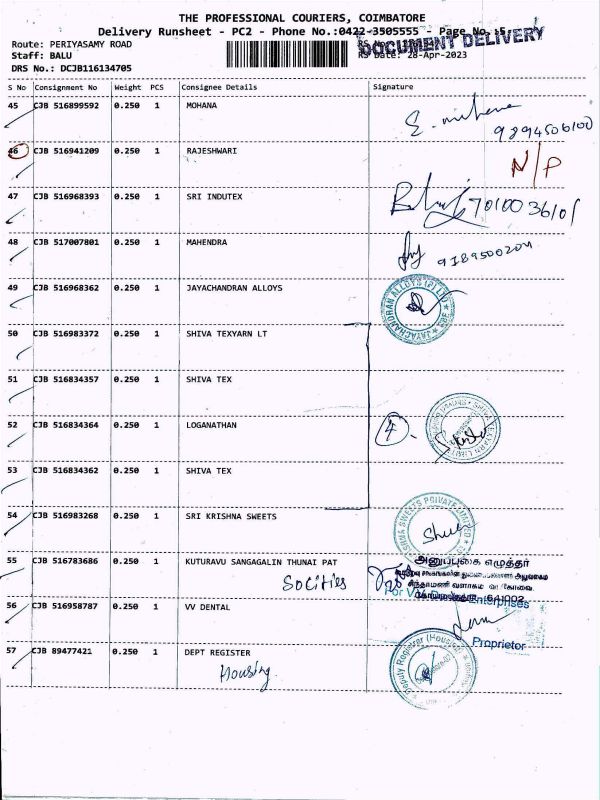 THE PROFESSIONAL COURIERS, COIMBATORE
Delivery Runsheet - PC2 - Phone No.:0422-3505555 - Page No.:5
DOCUMENT DELIVERY
Route: PERIYASAMY ROAD
Staff: BALU RS Date: 28-Apr-2023
DRS No.: DCJB116134705
S No Consignment No Weight PCS Consignee Details Signature
45 CJB 516899592 0.250 1 MOHANA
9894506100
46 CJB 516941209 0.250 1 RAJESHWARI N/P
47 CJB 516968393 0.250 1 SRI INDUTEX 7010036101
48 CJB 517007801 0.250 1 MAHENDRA
49 CJB 516968362 0.250 1 JAYACHANDRAN ALLOYS
JAYACHANDRAN ALLOYS (P) LTD
50 CJB 516983372 0.250 1 SHIVA TEXYARN LT
51 CJB 516834357 0.250 1 SHIVA TEX
52 CJB 516834364 0.250 1 LOGANATHAN 4
53 CJB 516834362 0.250 1 SHIVA TEX
54 CJB 516983268 0.250 1 SRI KRISHNA SWEETS
SWEETS PRIVATE LIMITED
55 CJB 516783686 0.250 1 KUTURAVU SANGAGALIN THUNAI PAT
அனுப்புகை எழுத்தர்
Socities
சிந்தாமணி வளாகம்
641002
For Enterprises
56 CJB 516958787 0.250 1 VV DENTAL
Proprietor
57 CJB 89477421 0.250 1 DEPT REGISTER
Deputy Registrar (Housing)
Housing